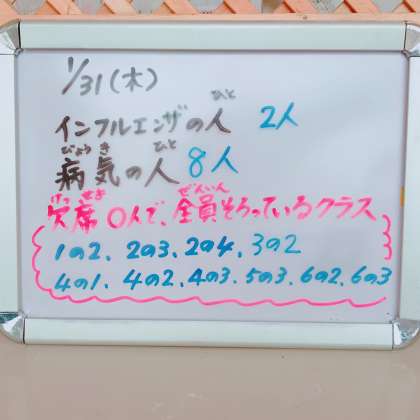 1/31(木)
インフルエンザの人 2人
病気の人 8人
欠席0人で、全員そろっているクラス
1の2、2の3、2の4、3の2
4の1、4の2、4の3、5の3、6の2、6の3